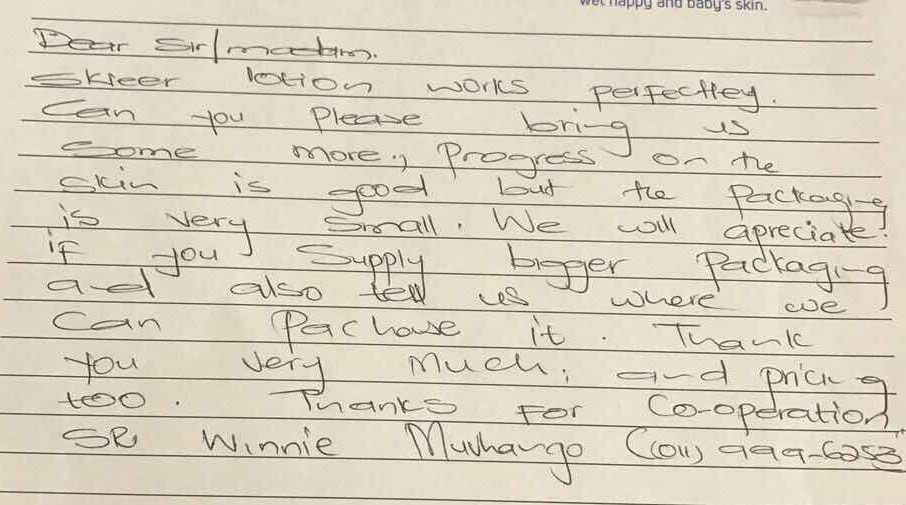 wet nappy and baby's skin.
Dear Sir/madam.
Skieer lotion works perfectley.
Can you Please bring us
Some more., Progress on the
skin is good but the packaging
is very Small. We will apreciate.
if you Supply bigger Packaging
and also tell us where we
Can Pachause it. Thank
you very Much, and pricing
too. Thanks For Co-operation
SR Winnie Muvhango (011) 999-6253